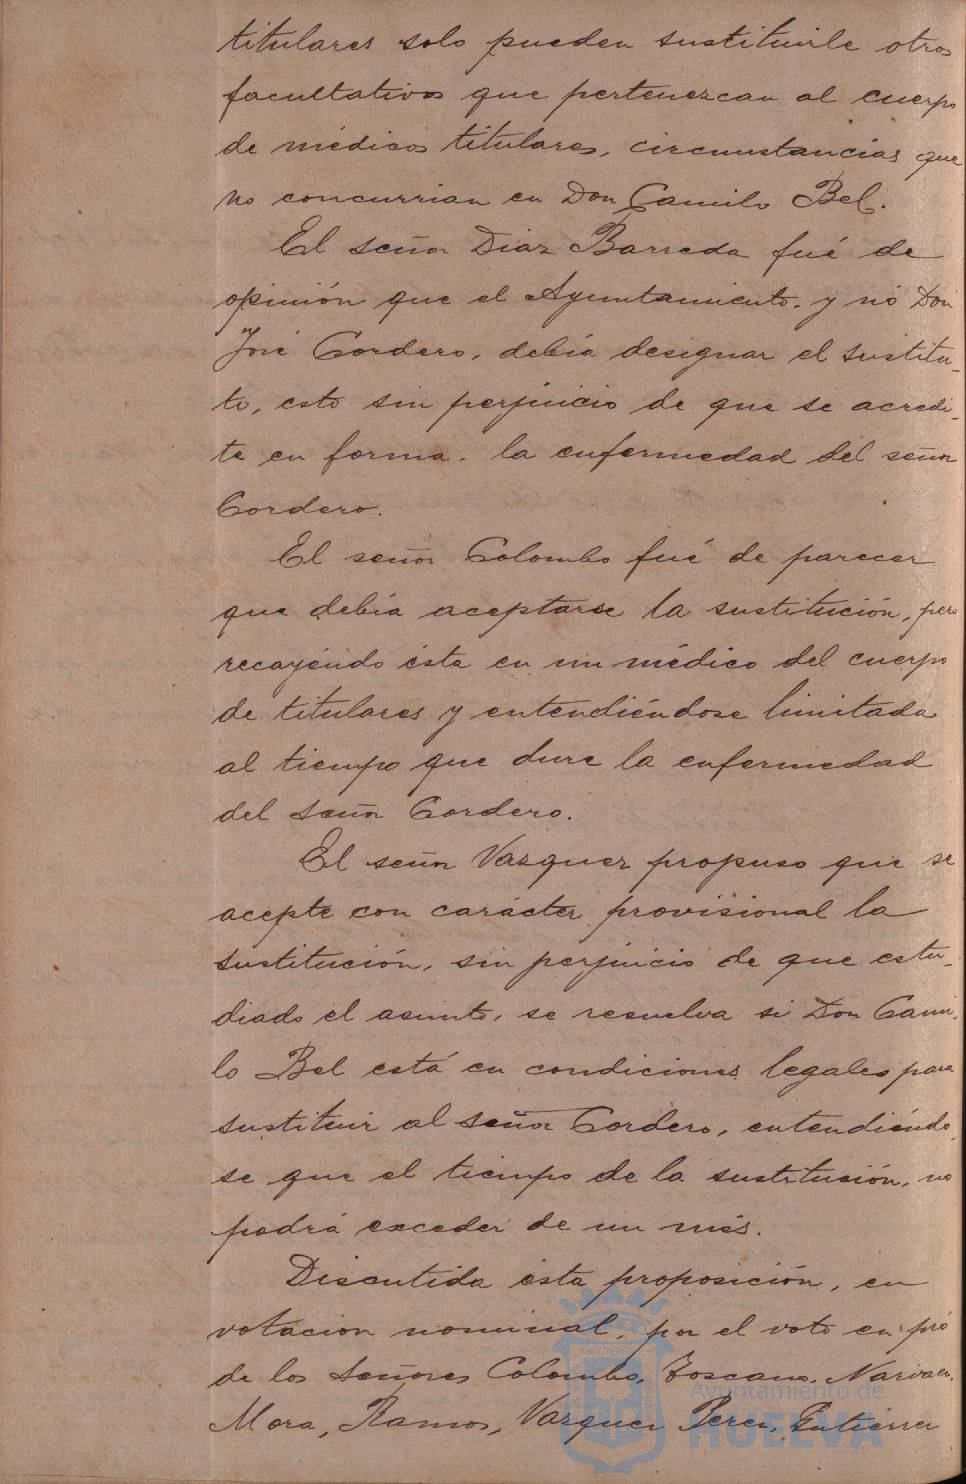 titulares solo pueden sustituirle otros
facultativos que pertenezcan al cuerpo
de médicos titulares, circunstancias que
no concurrian en Don Camilo Bel.
El señor Diaz Barreda fué de
opinión que el Ayuntamiento, y nó Don
José Cordero, debía designar el sustitu-
to, esto sin perjuicio de que se acredi-
te en forma. la enfermedad del señor
Cordero.
El señor Colombo fué de parecer
que debía aceptarse la sustitución, pero
recayéndo ésta en un médico del cuerpo
de titulares y entendiéndose limitada
al tiempo que dure la enfermedad
del señor Cordero.
El señor Vazquez propuso que se
acepte con carácter provisional la
sustitución, sin perjuicio de que estu-
diado el asunto, se resuelva si Don Cami-
lo Bel está en condiciones legales para
sustituir al señor Cordero, entendiéndo-
se que el tiempo de la sustitución, no
podrá exceder de un més.
Discutida ésta proposición, en
votacion nominal, por el voto en pró
de los Señores Colombo, Toscano, Narvaez,
Mora, Ramos, Vazquez Perez, Gutierrez
Ayuntamiento de
HUELVA